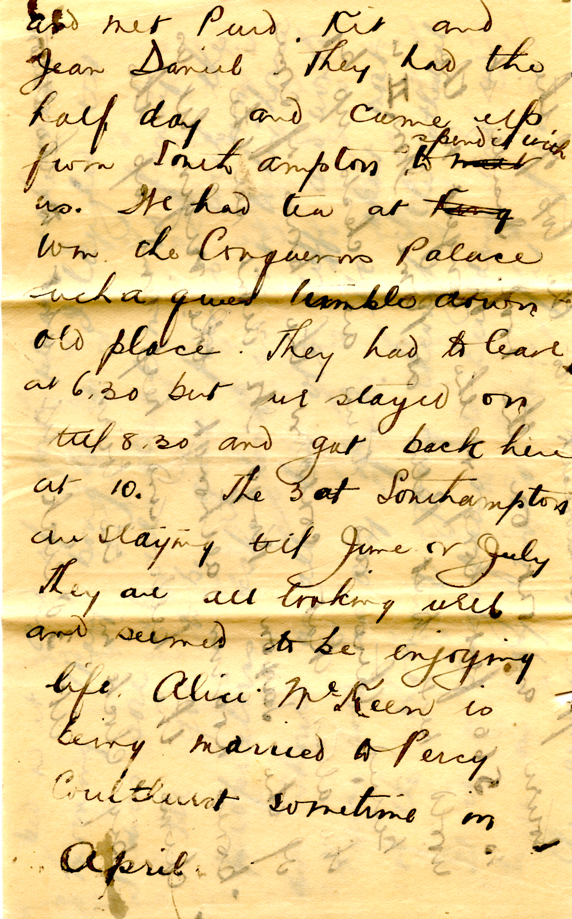 and met Purd. Kit and
Jean Daniel. They had the
half day and came up
from Southampton to meet spend it with
us. We had tea at King
Wm. the Conquerors Palace
such a queer tumble down
old place. They had to leave
at 6.30 but we stayed on
till 8.30 and got back here
at 10. The 3 at Southampton
are staying till June or July
They are all looking well
and seemed to be enjoying
life. Alice McKeen is
being married to Percy
sometime in
April.